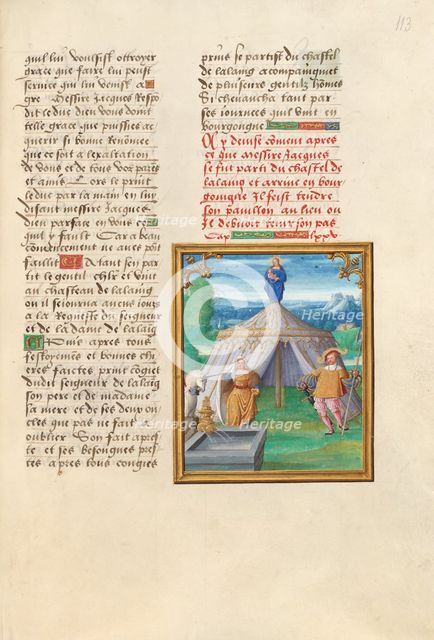 113
qu'il luy voulsist ottroyer
grace que faire luy peust
service qui luy venist a
gre Messire Jacques Respo
dit le duc dieu vous doint
telle grace que puissies ac
querir si bonne Renōmee
que ce soit a l'exaltation
de vous et de tous vos parēs
et amis Lors le print
le duc par la main en luy
disant messire Jacques
dieu parface en vous ce
qu'il y fault Car a beau
commencement ne aves point
faillit A tant son par
tit le gentil chlr et vint
au chasteau de lalaing
ou il sejourna aucuns jours
a la Requeste du seigneur
et de la dame de lalaīg
Puis apres tous
festoyemēs et bonnes chi
eres faictes print cōgiet
dudit seigneur de lalaīg
son pere et de madame
sa mere et de ses deux on
cles que pas ne fait a
oublier Son fait apres
te et ses besongnes pres
tes apres tous congies
prins se partist du chastel
de lalaing acompaingniet
de plusieurs gentilz hōmes
Si chevaucha tant par
ses journees qu'il vint en
bourgongne
Cy devise cōment apres
ce que messire Jacques
se fut parti du chastel de
lalaing et arrive en bour
gongne Il feist tendre
son pavillon au lieu ou
Il devoit tenir son pas
Cap lxx
Heritage
Heritage
Heritage
Heritage
Heritage
Heritage